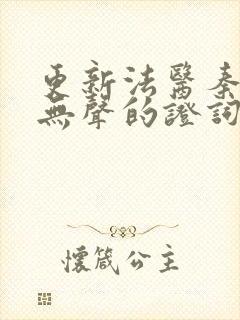 更新法醫秦
無聲的證詞
懷箴公主